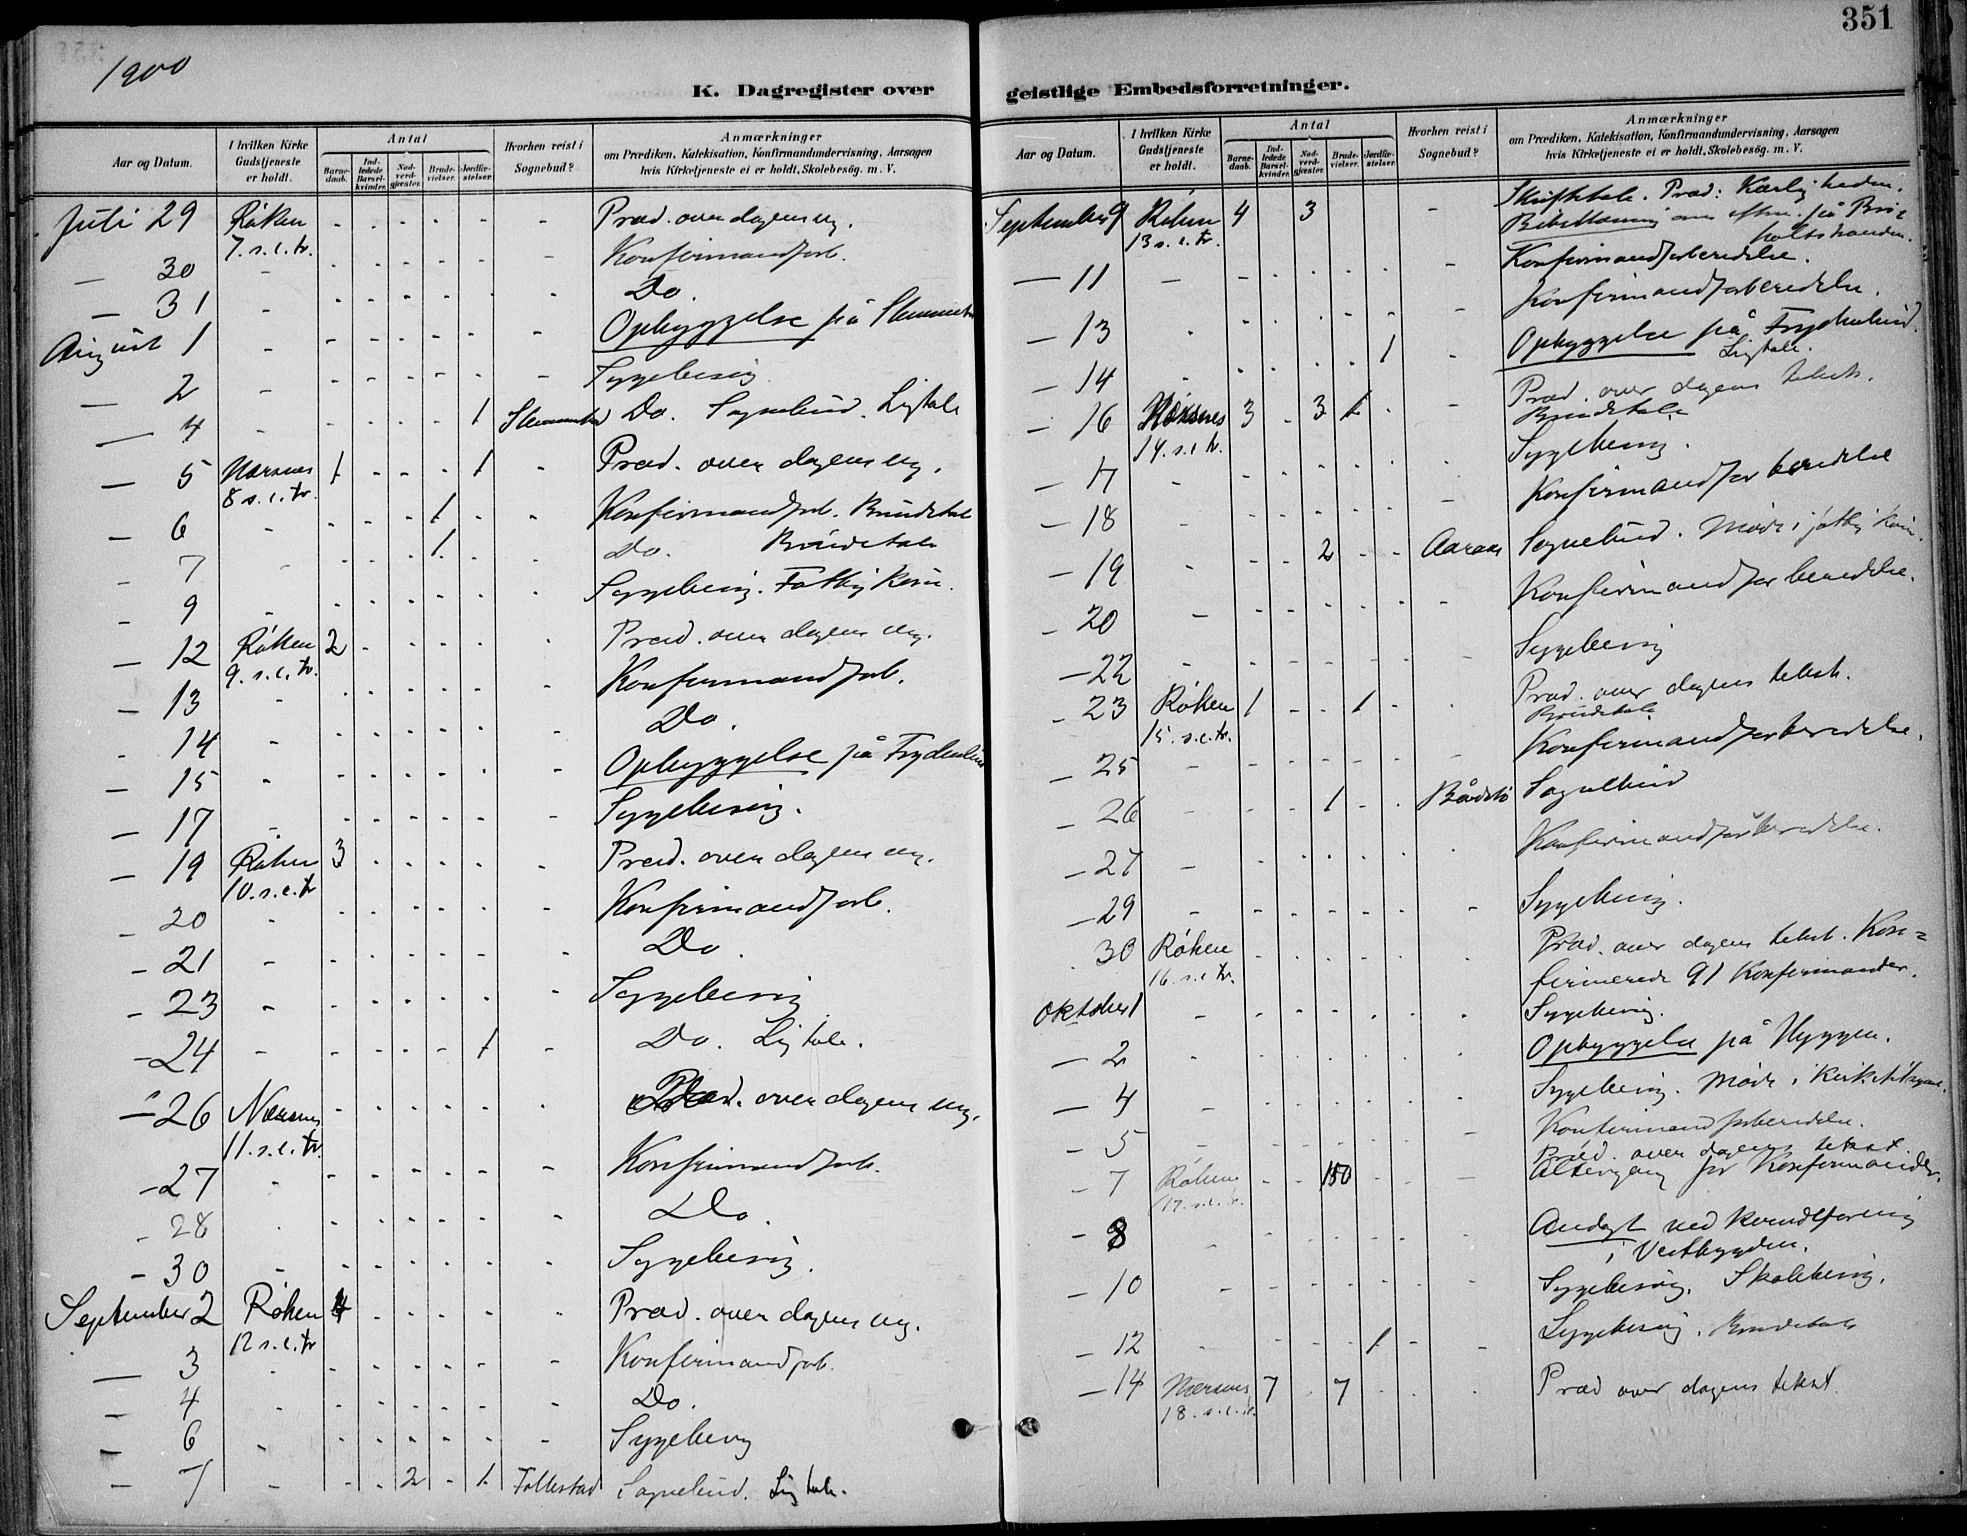 1900
351
K. Dagregister over
geistlige Embedsforretninger.
Aar og Datum.
I hvilken Kirke Gudstjeneste er holdt.
Antal
Barnedaab.
Indledede Barselkvinder.
Nadverdgjæster.
Brudevielser.
Jordfæstelser.
Hvorhen reist i Sognebud?
Anmærkninger
om Prædiken, Katekisation, Konfirmandundervisning, Aarsagen
hvis Kirketjeneste ei er holdt, Skolebesøg. m. V.
Juli 29 Røken - - - - - - Præd. over dagens ev.
7. s. e. tr.
- 30 - - - - - - - Konfirmandforb.
- 31 - - - - - - - Do.
August 1 - - - - - - - Opbyggelse på
- 2 - - - - - - - Sygebesøg
- 4 - - - - - 1 Do. Sognebud. Ligtale
- 5 Nærsnes 1 - - - 1 - Præd. over dagens ev.
8 s. e. tr.
- 6 - - - - 1 - - Konfirmandforb. Brudetale
- 7 - - - - 1. - - Do. Brudetale
- 9 - - - - - - - Sygebesøg.
- 12 Røken 2 - - - - - Præd. over dagens ev.
9. s. e. tr.
- 13 - - - - - - - Konfirmandforb.
- 14 - - - - - - - Do.
- 15 - - - - - - - Opbyggelse på Frydenlund
- 17 - - - - - - - Sygebesøg.
- 19 Røken 3 - - - - - Præd. over dagens ev.
10. s. e. tr
- 20 - - - - - - - Konfirmandforb.
- 21 - - - - - - - Do
- 23 - - - - - - - Sygebesøg
- 24 - - - - - 1 - Do. Ligtale.
- 26 Nærsnes - - - - - - Præd. over dagens ev.
11. s. e. tr.
- 27 - - - - - - - Konfirmandforb.
- 28 - - - - - - - Do.
- 30 - - - - - - - Sygebesøg.
September 2 Røken 4 - - - - - Præd. over dagens ev.
12 s. e. tr
- 3 - - - - - - - Konfirmandforb.
- 4 - - - - - - - Do.
- 6 - - - - - - - Sygebesøg
- 7 - - - 2 - 1. Follestad Sognebud. Ligtale.
Aar og Datum.
I hvilken Kirke Gudstjeneste er holdt.
Antal
Barnedaab.
Indledede Barselkvinder.
Nadverdgjæster.
Brudevielser.
Jordfæstelser.
Hvorhen reist i Sognebud?
Anmærkninger
om Prædiken, Katekisation, Konfirmandundervisning, Aarsagen
hvis Kirketjeneste ei er holdt, Skolebesög. m. V.
Skriftetale. Præd: Kærligheden.
September 9 Røken 4 3 - Bibellæsning om eftm. på
13 s. e. tr.
- 11 - - - - - - - Konfirmandforberedelse.
- 13 - - - - - - - Konfirmandforberedelse.
- 14 - - - - - 1 - Opbyggelse på Frydenlund.
Ligtale.
- 16 Nærsnes 3 - 3 1 - - Præd. over dagens tekst.
14. s. e. tr. Brudetale
- 17 - - - - - - - Sygebesøg.
- 18 - - - - - - - Konfirmandforberedelse
- 19 - - - 2 - - Aaraas Sognebud. Møde i
- 20 - - - - - - - Konfirmandforberedelse.
- 22 - - - - - - - Sygebesøg
- 23 Røken 1 - - 1 - - Præd. over dagens tekst.
15. s. e. tr. Brudetale
- 25 - - - - - - - Konfirmandforberedelse.
- 26 - - - 1 - - Bådstø Sognebud
- 27 - - - - - - - Konfirmandforberedelse.
- 29 - - - - - - - Sygebesøg.
30 Røken - - - - - - Præd. over dagens tekst. Kon=
16. s. e. tr. firmerede 91 Konfirmander.
Oktober 1 - - - - - - - Sygebesøg.
- 2 - - - - - - - Opbyggelse på Hyggen.
- 4 - - - - - - - Sygebesøg. Møde i
- 5 - - - - - - - Konfirmandforberedelse.
Præd. over dagens tekst.
- 7 Røken - - 150 - - - Altergang for Konfirmander.
17. s. e. tr.
- 8 - - - - - - - Andagt ved
i Vestbygden.
- 10 - - - - - - - Sygebesøg. Skolebesøg.
- 12 - - - - 1 - - Sygebesøg. Brudetale
- 14 Nærsnes 7 - 7 - - - Præd over dagens tekst.
18. s. e. tr.